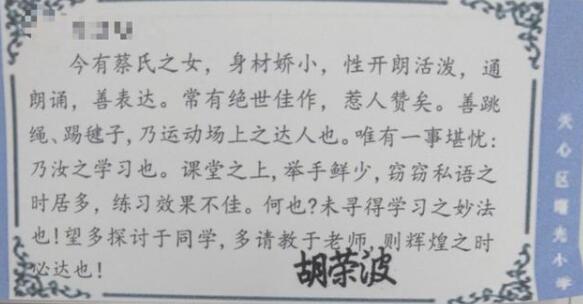 今有蔡氏之女，身材娇小，性开朗活泼，通
朗诵，善表达。常有绝世佳作，惹人赞矣。善跳
绳、踢毽子，乃运动场上之达人也。唯有一事堪忧：
乃汝之学习也。课堂之上，举手鲜少，窃窃私语之
时居多，练习效果不佳。何也？未寻得学习之妙法
也！望多探讨于同学，多请教于老师，则辉煌之时
必达也！
胡荣波
天心区曙光小学